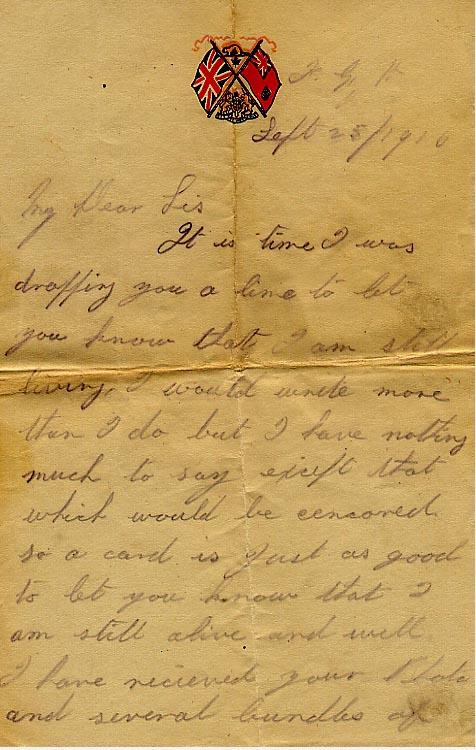 Sept 25/1916
My Dear Sis
It is time I was
dropping you a line to let
you know that I am still
living, I would write more
than I do but I have nothing
much to say except that
which would be cencored
so a card is just as good
to let you know that I
am still alive and well
I have recieved your
and several bundles of